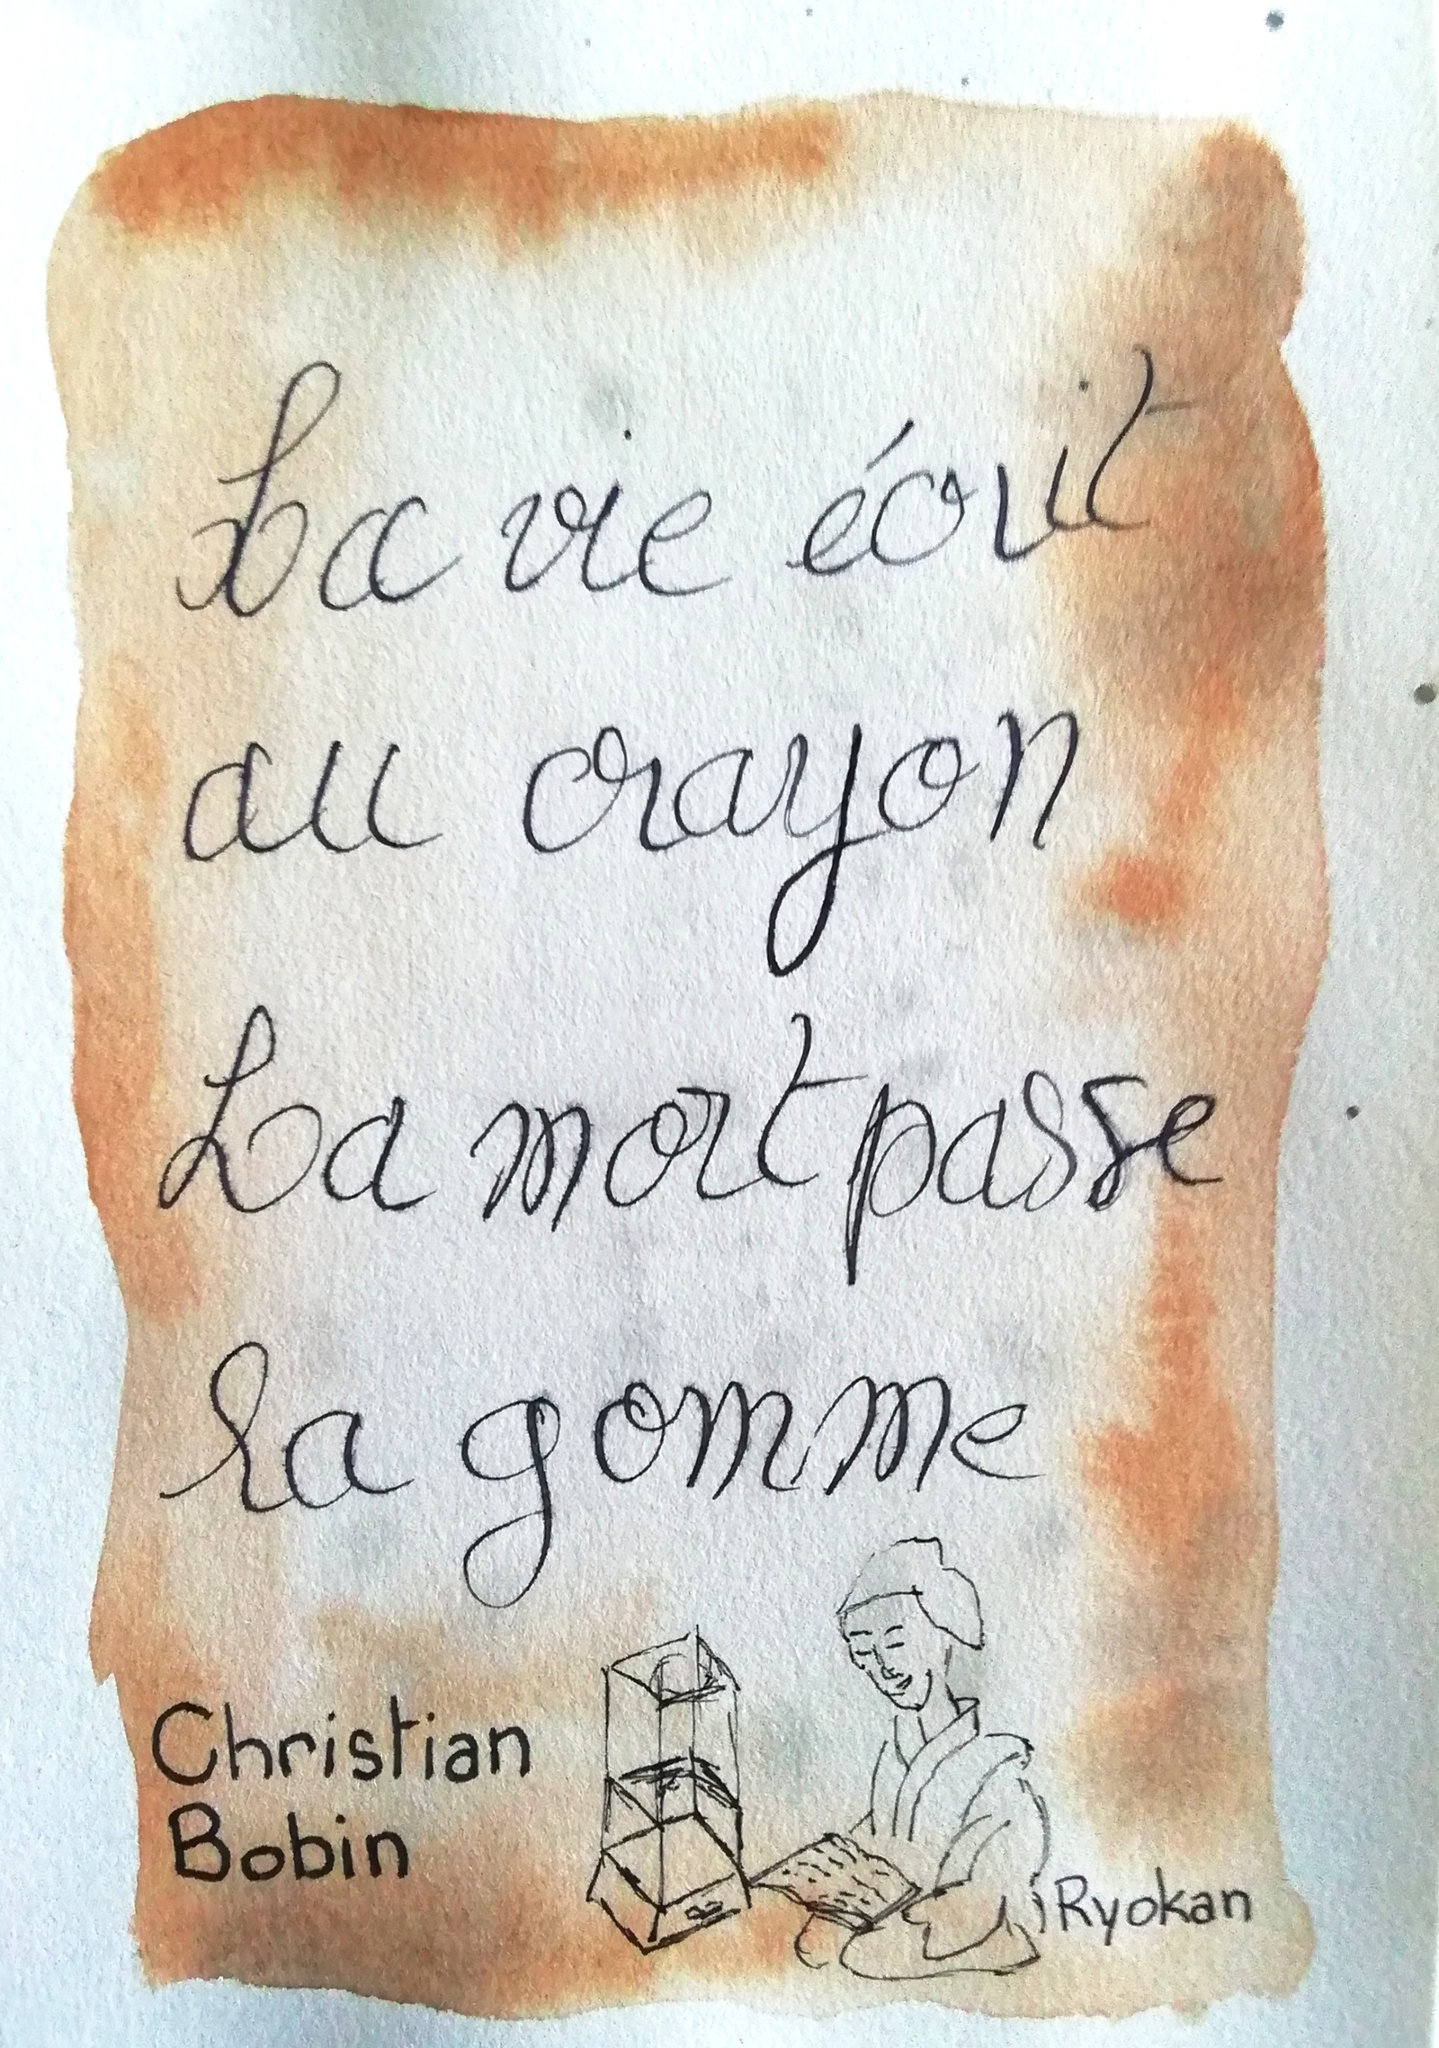 La vie écrit
au crayon
La mort passe
la gomme
Christian
Bobin
Ryokan